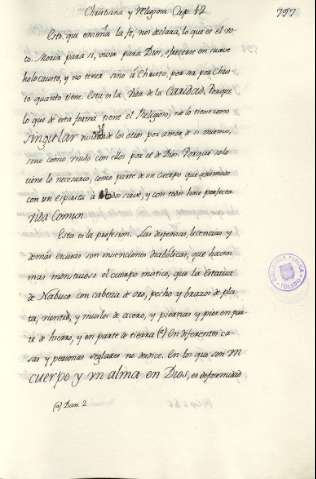 Christiana y Religiosa Cap. 42
757
Esto que enseña la fe, nos declara, lo que es el vo-
to. Morir para si, vivir para Dios, ofrecerse en suave
holocausto, y no tener sino à Christo, por su por Chris-
to quanto tiene. Esta es la vida de la Caridad. Porque
lo que de esta forma tiene el Religioso, no lo tiene como
singular de los otros por amor de si mismo,
sino como unido con ellos por el de Dios. Porque solo
tiene lo necesario, como parte de un cuerpo que animado
con un espiritu à todo sirve, y con todos hace perfecta
vida Comun.
Esta es la profesion. Las dispensas, licencias y
demàs ensanches son invenciones diabolicas, que hacen
mas monstruoso el cuerpo mistico, que la Estatua
de Nabuco con cabeza de oro, pecho y brazos de pla-
ta, vientre, y muslos de acero, y piernas y pies en par-
te de hierro, y en parte de tierra (a) En diferentes ca-
sas y personas seglares no
En los que son un
cuerpo y vn alma en Dios, es deformidad
(a) Dan. 2
TOLEDO